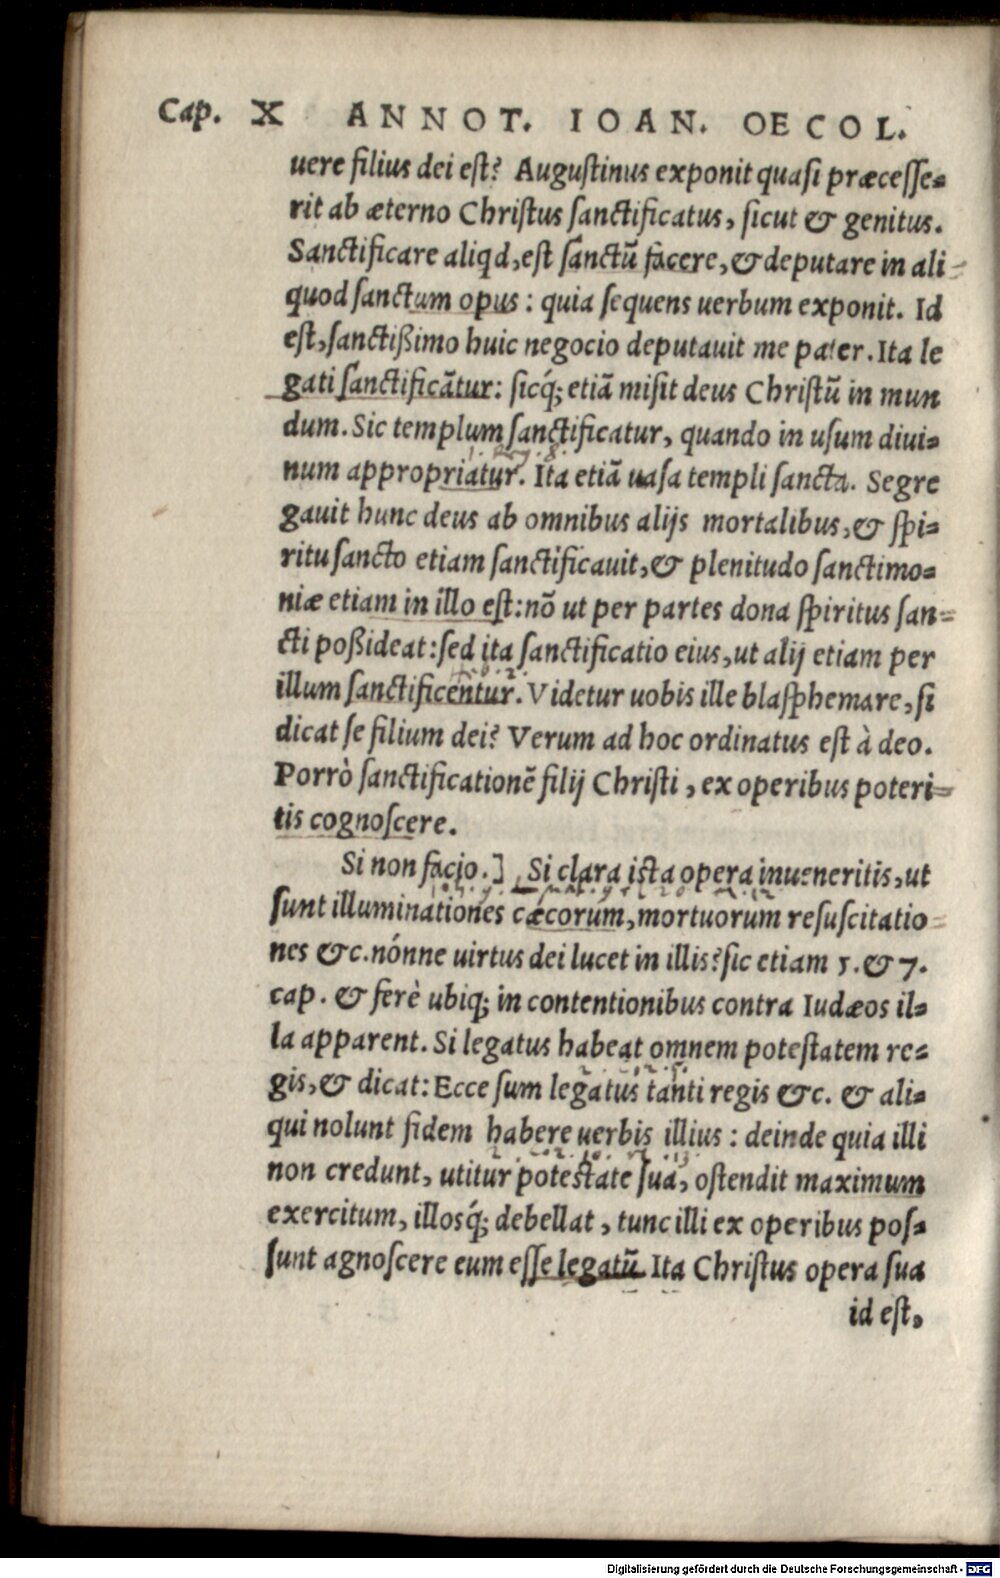 Cap. X ANNOT. IOAN. OECOL.
uere filius dei est? Augustinus exponit quasi præcesse=
rit ab æterno Christus sanctificatus, sicut & genitus.
Sanctificare aliqd, est sanctū facere, & deputare in ali=
quod sanctum opus : quia sequens uerbum exponit. Id
est, sanctißimo huic negocio deputauit me pater. Ita le
gati sanctificātur: sicq́; etiā misit deus Christū in mun
dum. Sic templum sanctificatur, quando in usum diui=
num appropriatur. Ita etiā uasa templi sancta. Segre
gauit hunc deus ab omnibus alijs mortalibus, & spi=
ritu sancto etiam sanctificauit, & plenitudo sanctimo=
niæ etiam in illo est: nō ut per partes dona spiritus san=
cti poßideat: sed ita sanctificatio eius, ut alij etiam per
illum sanctificentur. Videtur uobis ille blasphemare, si
dicat se filium dei? Verum ad hoc ordinatus est à deo.
Porrò sanctificationē filij Christi, ex operibus poteri=
tis cognoscere.
Si non facio.] Si clara ista opera inueneritis, ut
sunt illuminationes cæcorum, mortuorum resuscitatio=
nes &c. nónne uirtus dei lucet in illis? sic etiam 5. & 7.
cap. & ferè ubiq; in contentionibus contra Iudæos il=
la apparent. Si legatus habeat omnem potestatem re=
gis, & dicat: Ecce sum legatus tanti regis &c. & ali=
qui nolunt fidem habere uerbis illius : deinde quia illi
non credunt, utitur potestate sua, ostendit maximum
exercitum, illosq́; debellat, tunc illi ex operibus pos=
sunt agnoscere eum esse legatū. Ita Christus opera sua
id est,
Digitalisierung gefördert durch die Deutsche Forschungsgemeinschaft - DFG